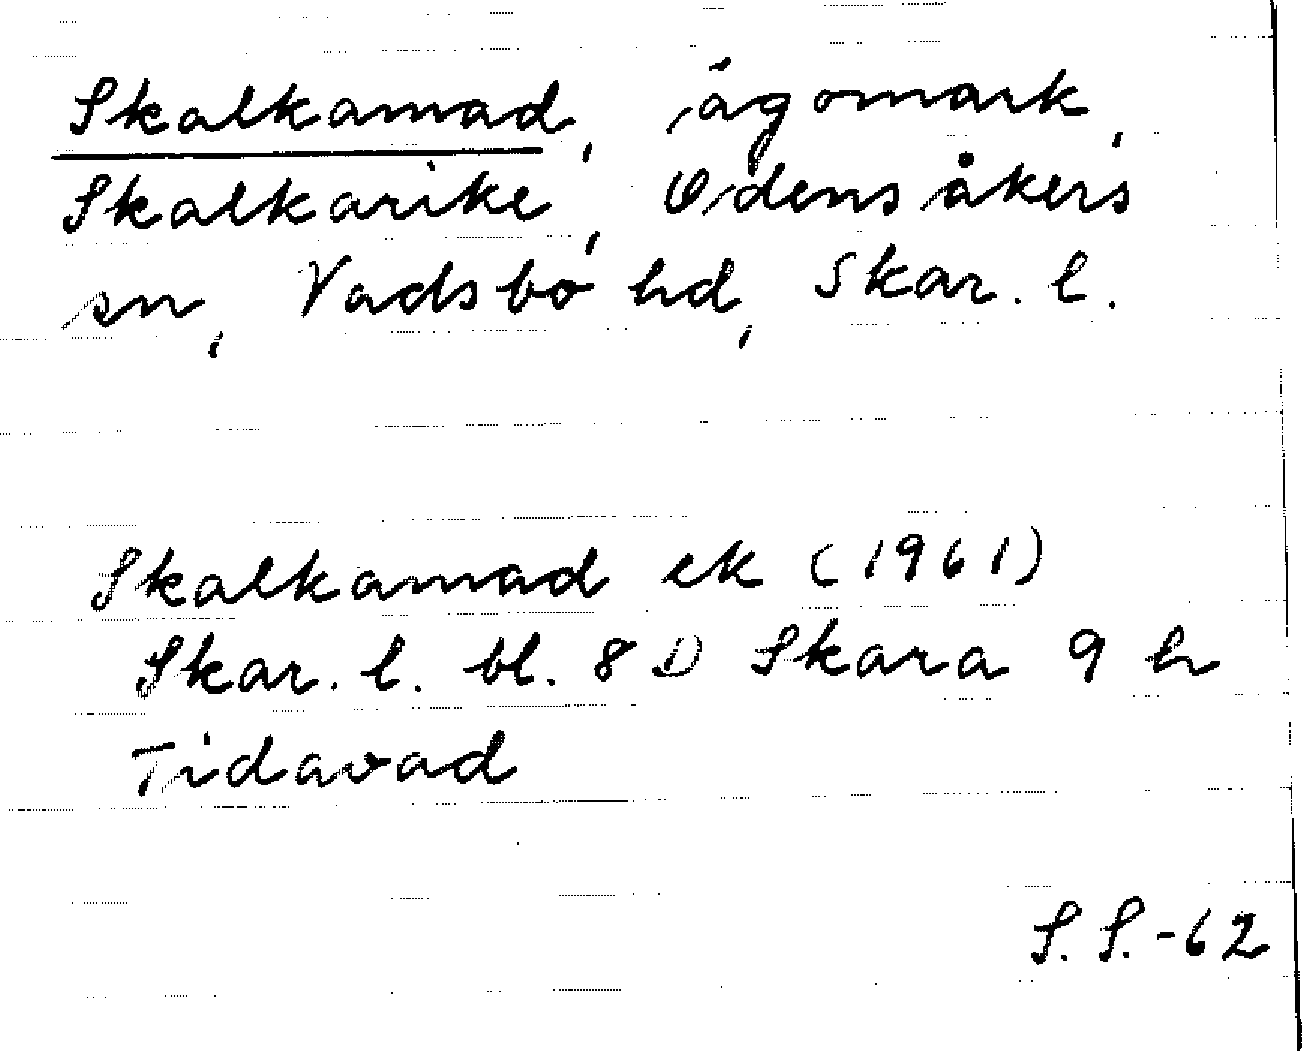 Skalkamad, ägomark,
Skalkarike, Odensåkers
sn, Vadsbo hd, Skar. l.
Skalkamad ek (1961)
Skar. l. bl. 8 D Skara 9 h
Tidavad
S. S. -62